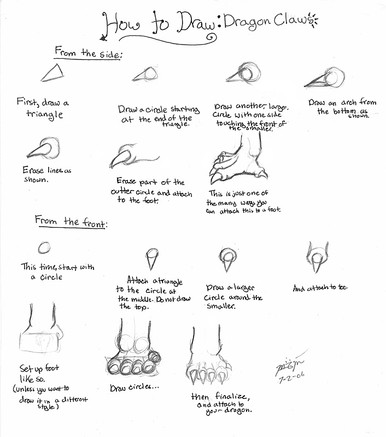 How to Draw: Dragon Claws
From the side:
First, draw a
triangle
Draw a circle starting
at the end of the
triangle.
Draw another large
circle with one side
touching the front of
the smaller.
Draw an arch from
the bottom as
shown.
Erase lines as
shown.
Erase part of the
outter circle and attach
to the foot.
This is just one of
the many ways you
can attach this to a foot
From the front:
This time, start with
a circle
Attach a triangle
to the circle at
the middle. Do not draw
the top.
Draw a larger
circle around the
smaller.
And attach to toe.
Set up foot
like so.
(unless you want to
draw it in a different
style)
Draw circles...
then finalize,
and attach to
your dragon.
7-2-06